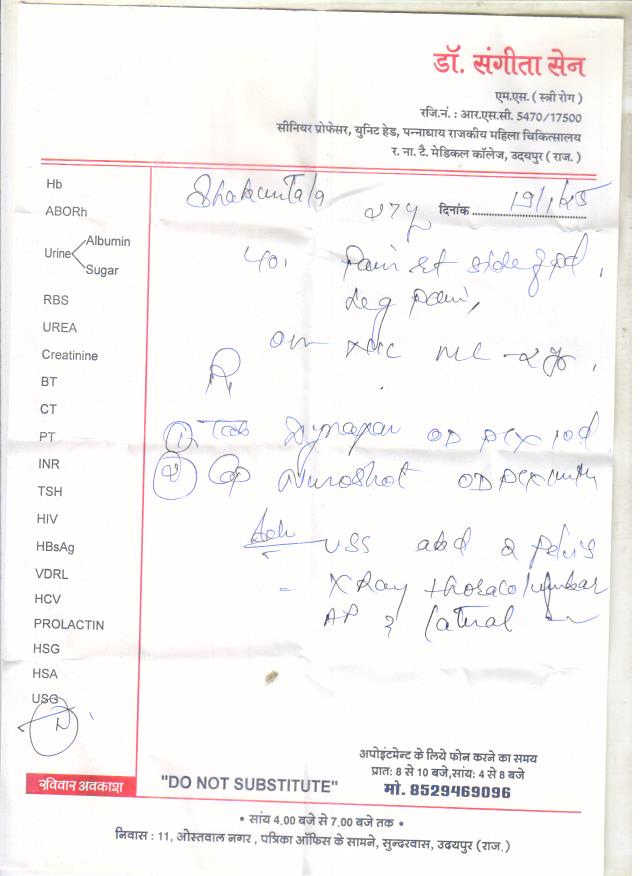 डॉ. संगीता सेन
एम.एस. ( स्त्री रोग )
रजि.नं. : आर.एस.सी. 5470/17500
सीनियर प्रोफेसर, युनिट हेड, पन्नाधाय राजकीय महिला चिकित्सालय
र. ना. टै. मेडिकल कॉलेज, उदयपुर ( राज. )
Hb
ABORh
Urine
Albumin
Sugar
RBS
UREA
Creatinine
BT
CT
PT
INR
TSH
HIV
HBsAg
VDRL
HCV
PROLACTIN
HSG
HSA
USG
दिनांक
Pain side of
leg pain,
①
OD
② OD
Adv USS abd & pelvis
= X Ray thoraco lumbar
AP & lateral
रविवार अवकाश
"DO NOT SUBSTITUTE"
अपोइंटमेन्ट के लिये फोन करने का समय
प्रातः 8 से 10 बजे, सांयः 4 से 8 बजे
मो. 8529469096
• सांय 4.00 बजे से 7.00 बजे तक •
निवास : 11, ओस्तवाल नगर , पत्रिका ऑफिस के सामने, सुन्दरवास, उदयपुर (राज.)